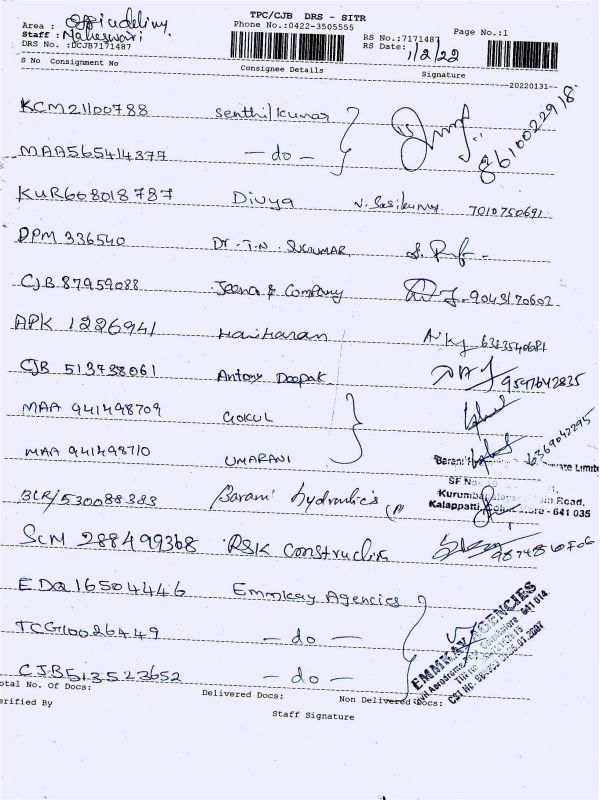 TPC/CJB DRS - SITR
Area : Office delivery.
Phone No.:0422-3505555
Page No.:1
Staff : Maheswari
RS No.:7171487
DRS No. :DCJB7171487
RS Date: 1/2/22
S No Consignment No Consignee Details Signature
--20220131--
KCM21100788 Senthilkumar 8610022918
MAA565414377 - do -
KUR608018787 Divya V. Sasikumar 7010750691
DPM 336540 Dr. T.N. SUKUMAR
CJB 87959088 Jeena & Company 9043170602
APK 1226941 Hariharan 6383540681
CJB 513738061 Antony Deepak 9597642835
MAA 941498709 GOKUL
MAA 941498710 UMARANI 6369042295
Barani Private Limite
SF No.
BLR/530088383 Barani hydraulics
Kurumba Road,
Kalappatti, Coimbatore - 641 035
SCM 288499368 RSK Construction
EDQ16504446 Emmkay Agencies
TCG10026449 - do -
CJB513523652 - do -
EMMKAY AGENCIES
Civil Aerodrome Coimbatore 641 014
TIN No.
CST No. 01.2007
otal No. of Docs: Delivered Docs: Non Delivered Docs:
erified By
Staff Signature